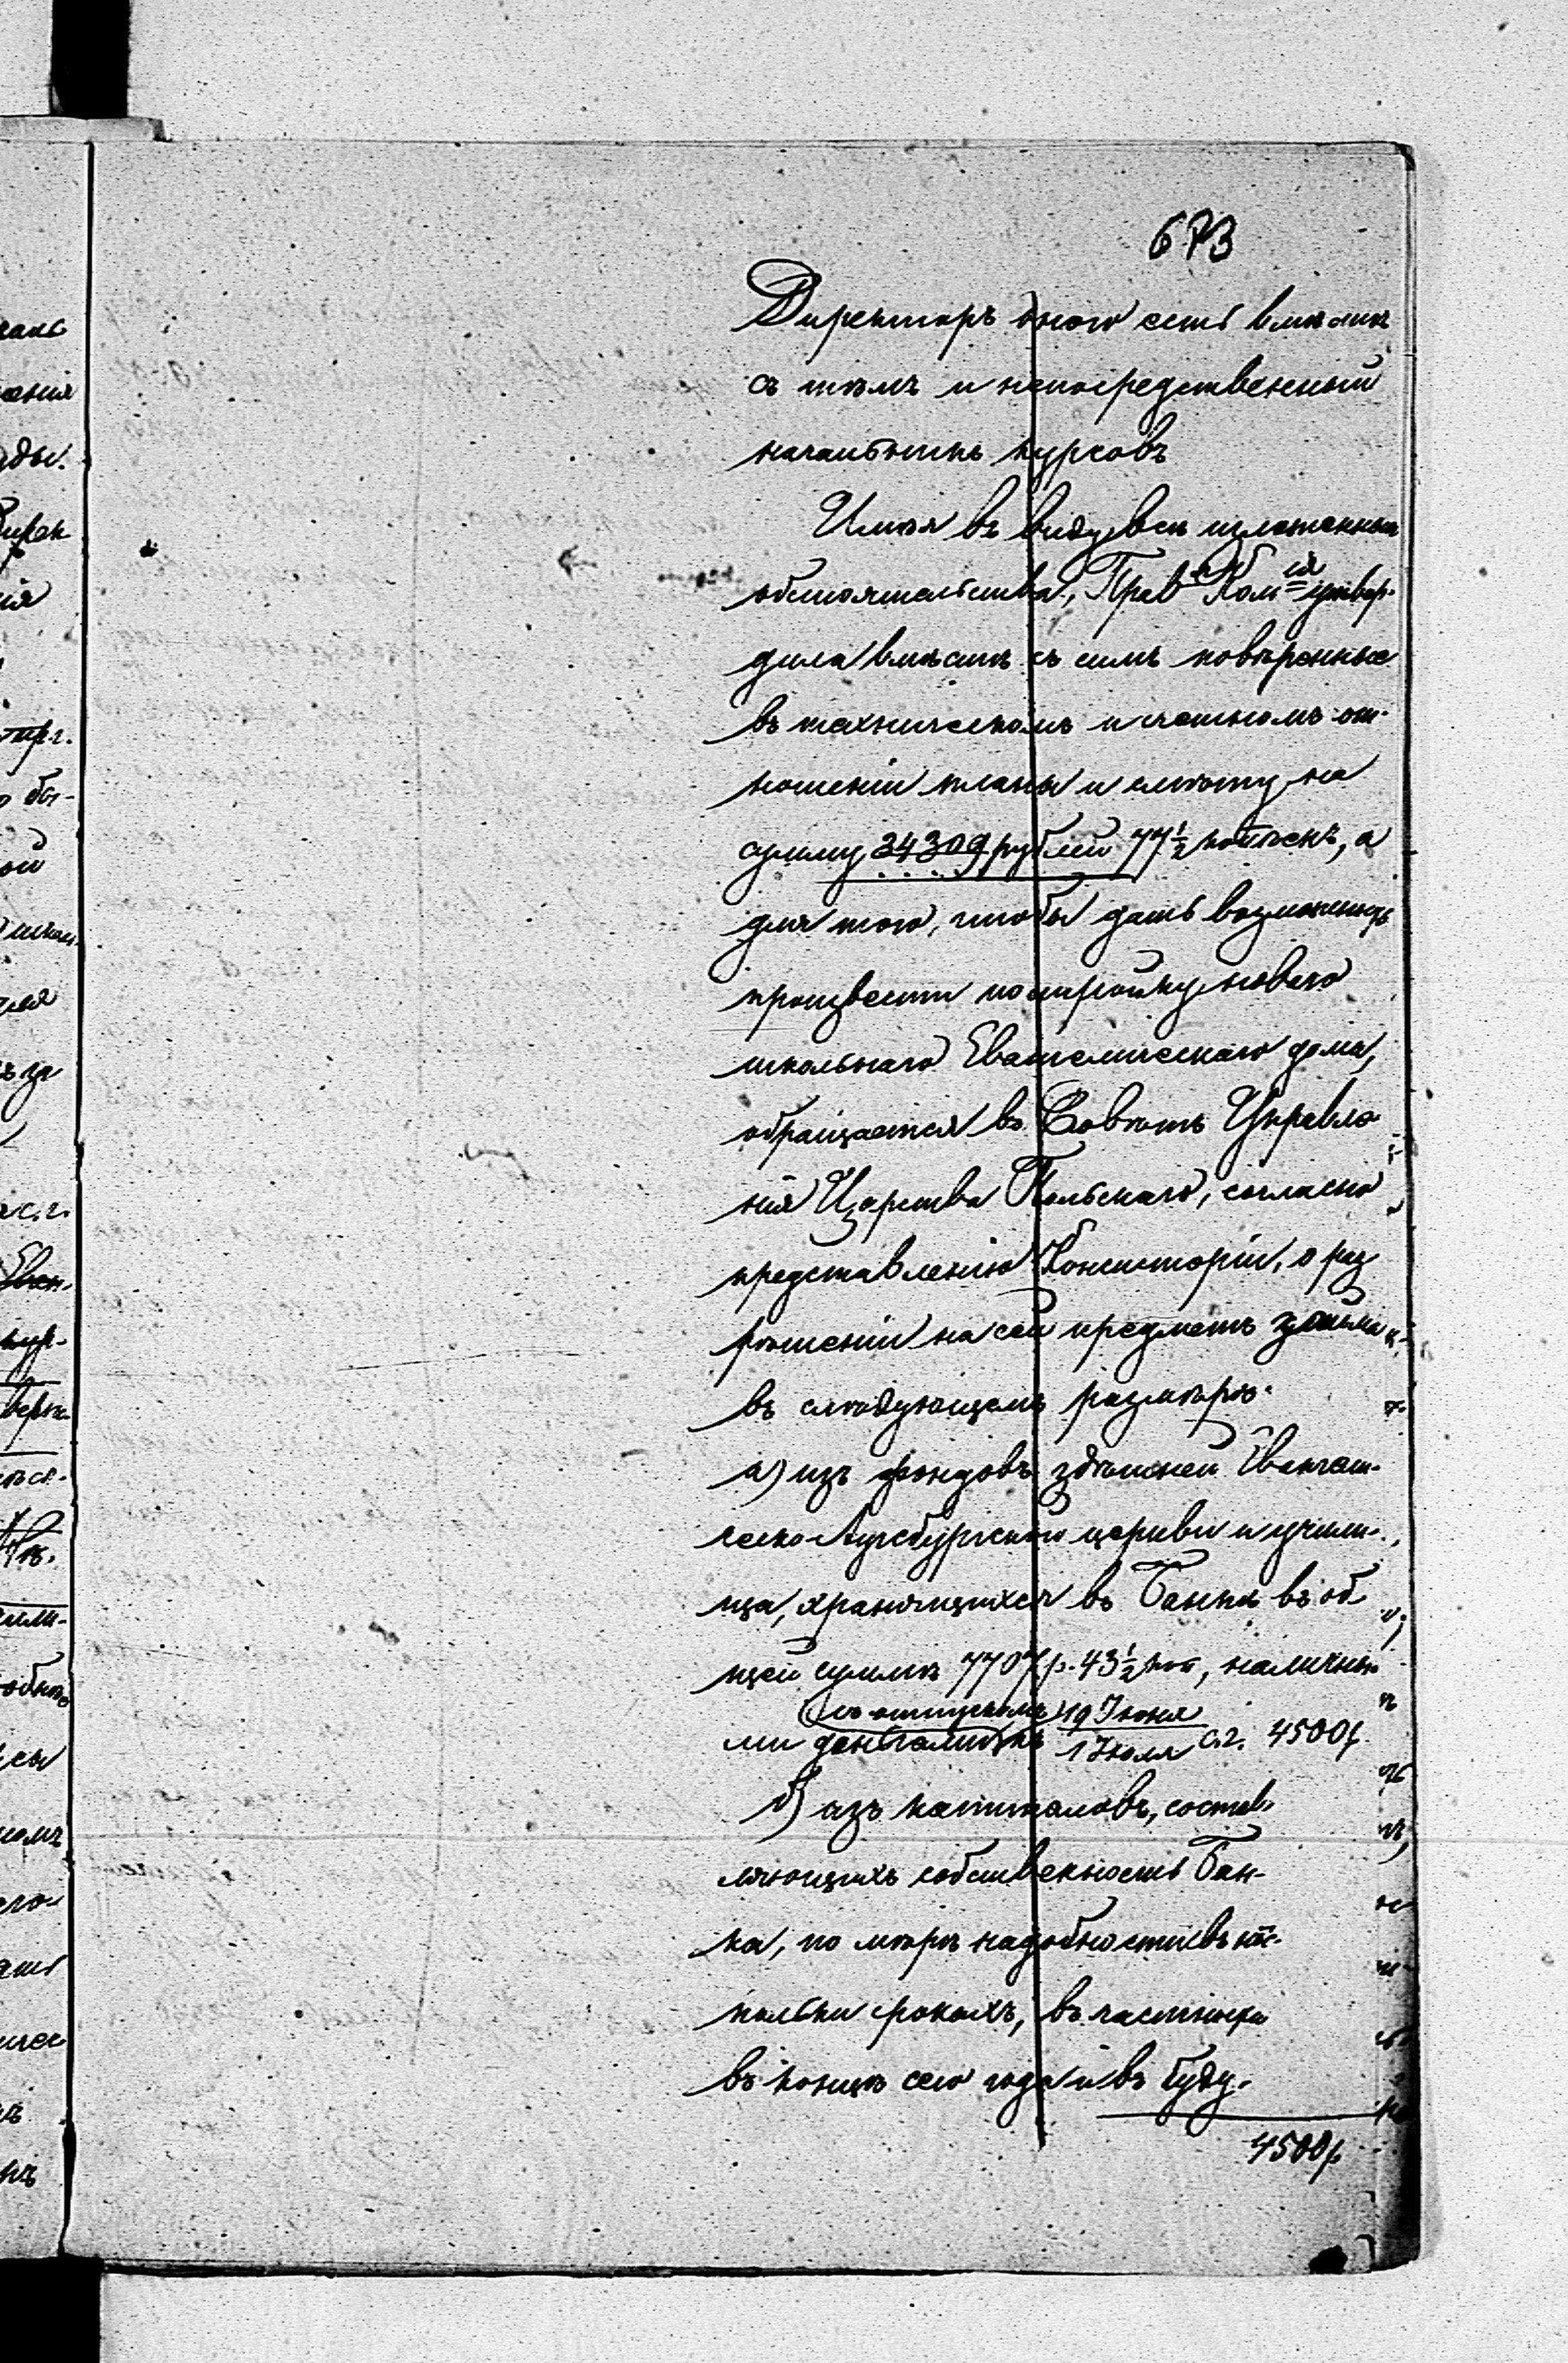 673
Директоръ оного есть вмѣстѣ
съ тѣмъ и непосредственный
начальникъ курсовъ
Имѣя въ виду всѣ изложенныя
обстоятельства, Прав Ком ія утвер-
дила вмѣстѣ съ симъ повѣренные
въ техническомъ и счетномъ от-
ношеніи планы и смѣту на
сумму 24309 рублей 77½ копѣекъ, а
для того, чтобы дать возможность
произвести постройку новаго
школьнаго Евангелическаго дома,
обращается въ Совѣтъ Управле
нія Царства Польскаго, согласно
представленію Консисторіи, о раз
рѣшеніи на сей предметъ займа
въ слѣдующемъ размѣрѣ.
а) изъ фондовъ здѣшней Евангели-
ческо-Аугсбургской церкви и учили-
ща, хранящихся въ Банкѣ въ об
щей суммѣ 7707 р. 43½ коп, наличны
съ отпускомъ 19 Іюня
ми деньгами 1 Іюля с.г. 4500 р.
б) изъ капиталовъ, состав-
ляющихъ собственность Бан-
ка, по мѣрѣ надобности въ нѣ-
кольки рокахъ, въ
въ концѣ сего года и въ буду-
4500 р